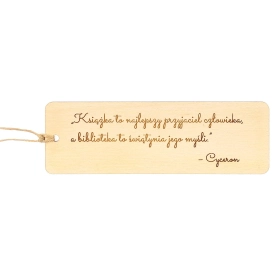 „Książka to najlepszy przyjaciel człowieka,
a biblioteka to świątynia jego myśli.”
– Cyceron